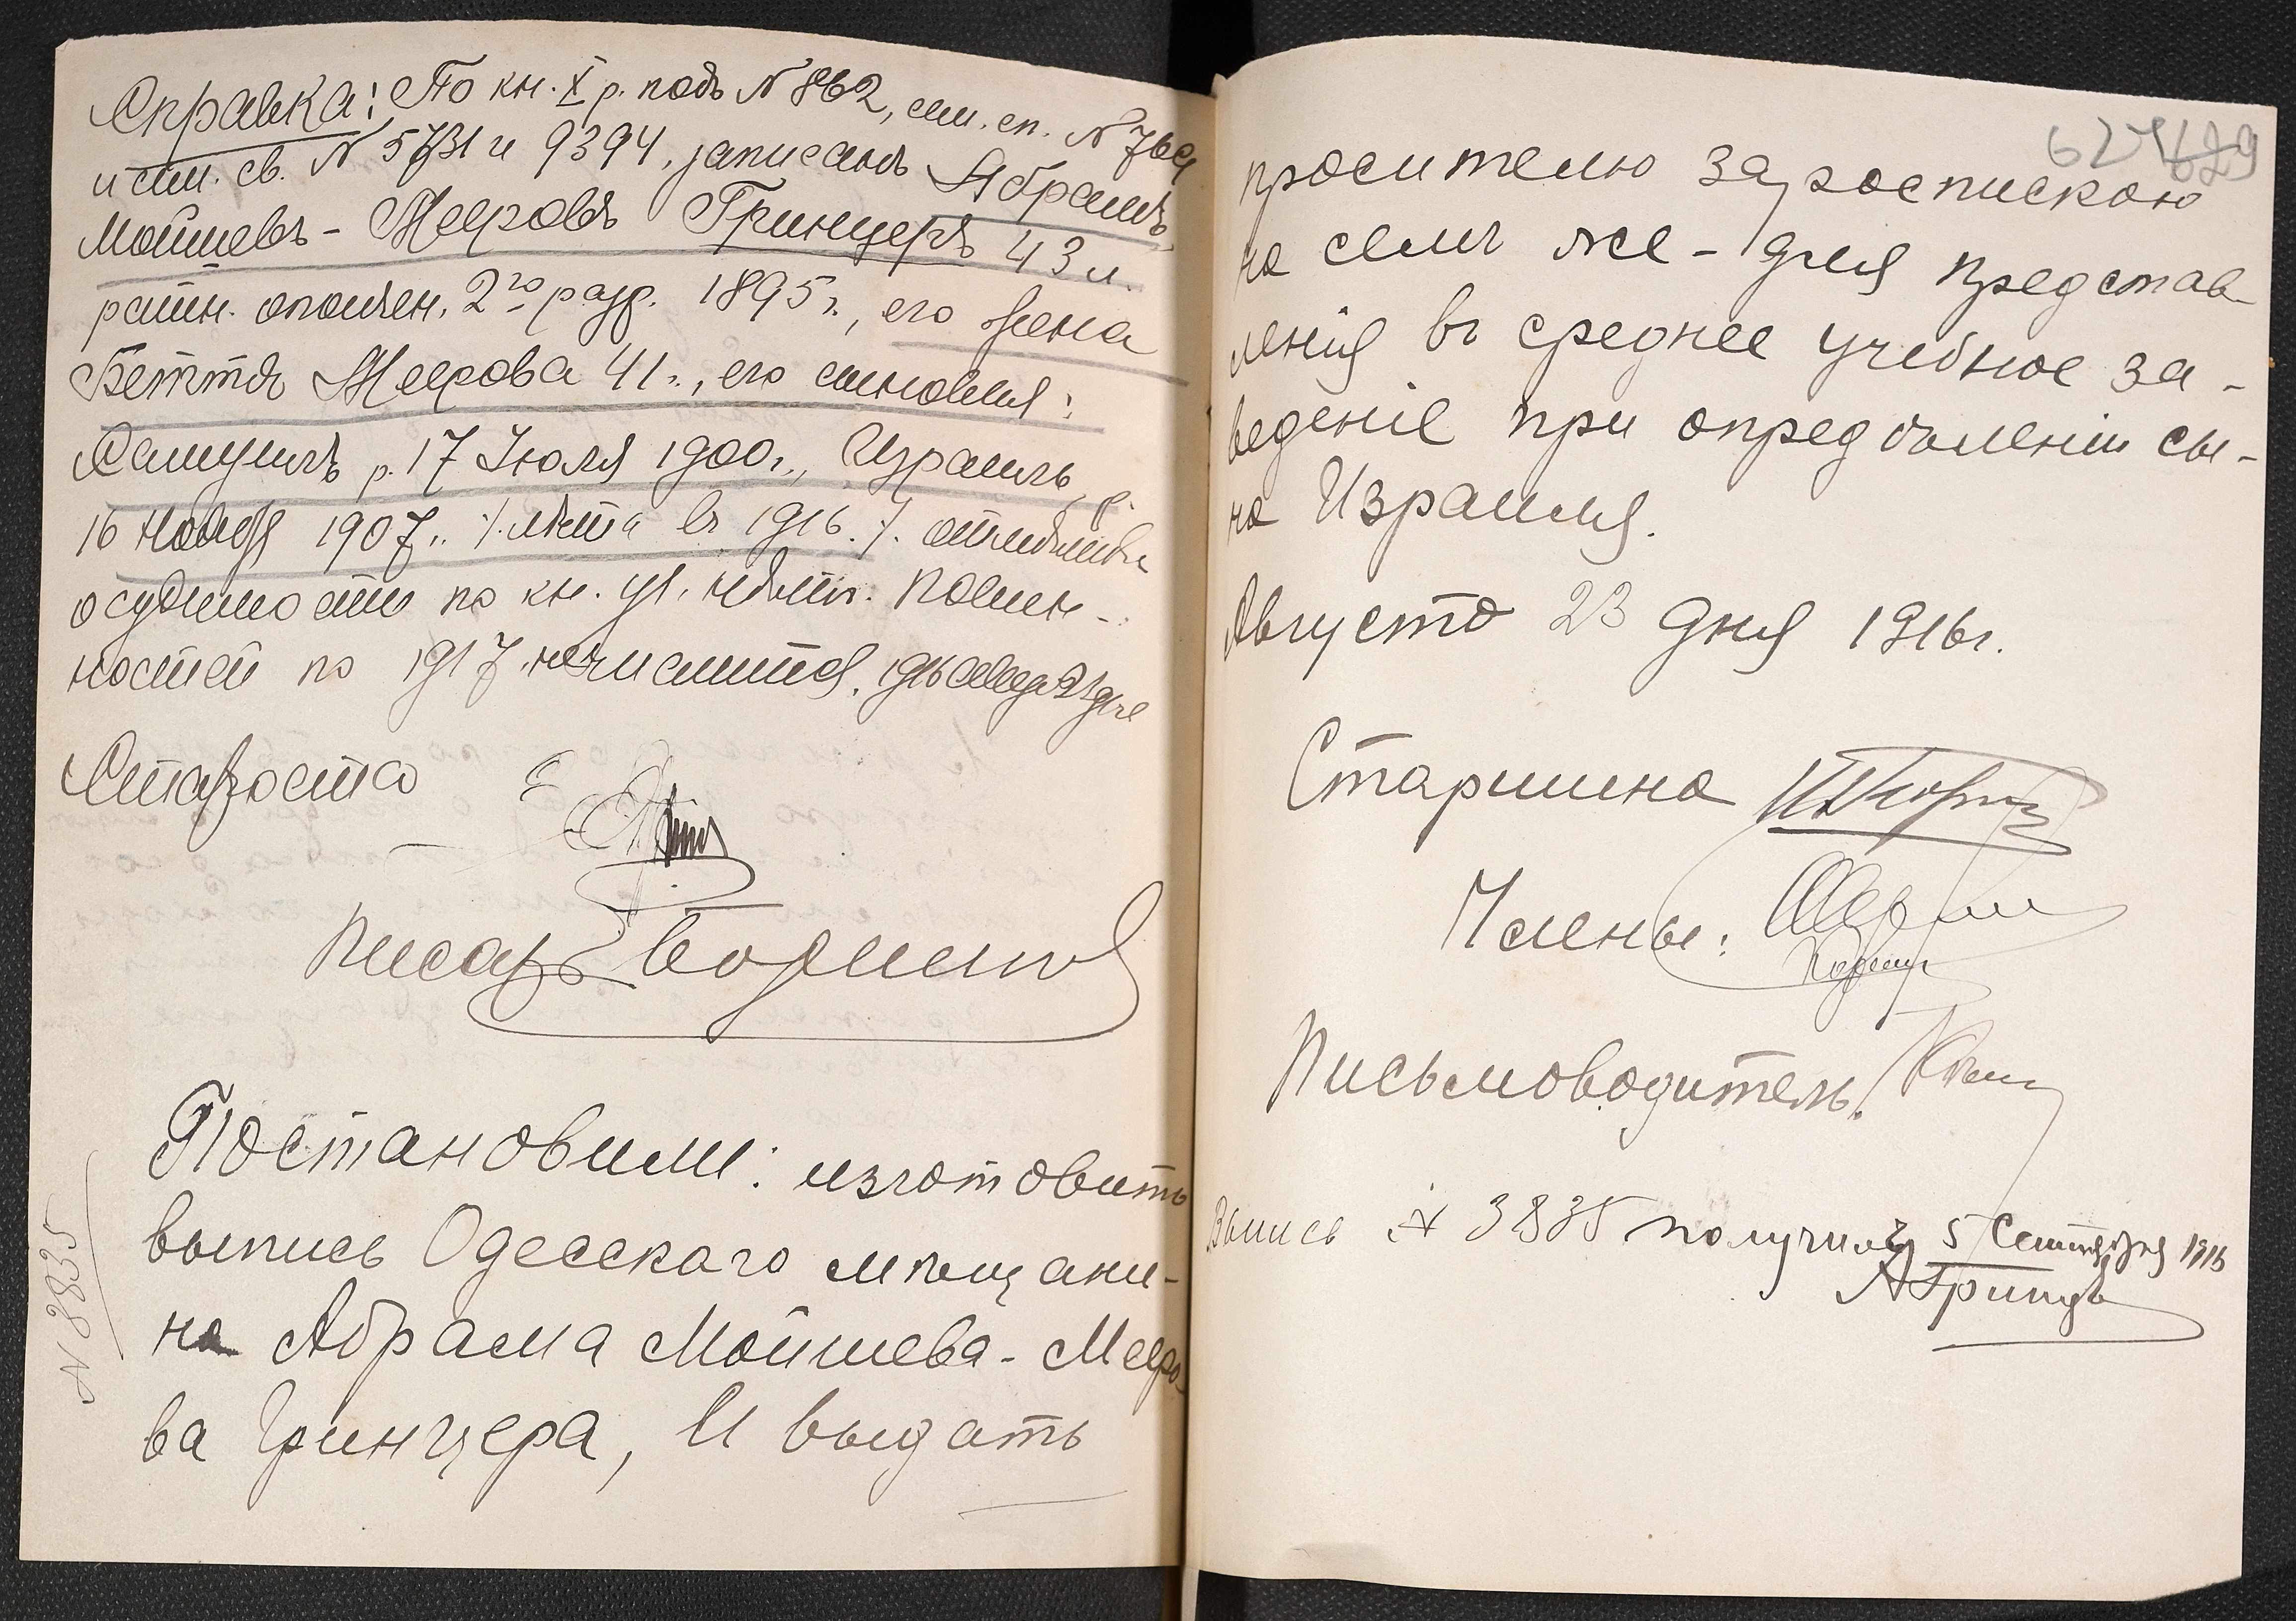 Справка: По кн. X р. подъ N 862, сем. сп. N
и сем. св. N 5731 и 9394, записанъ Абрамъ
Мойшевъ-Мееровъ Гринцеръ 43 л.
ратн. ополчен. 2го разр. 1895 г., его жена
Беття Меерова 41 г., его сыновья:
Самуилъ р. 17 Юля 1900 г., Израиль р.
16 Ноября 1907 г. /. лѣта въ 1916 г. /.
осудимости по кн. повин-
ностей по 1917 г. не числится.
Староста
Писарь
Постановили: изготовить
выпись Одесскаго мѣщани-
на Абрама Мойшева-Мееро-
ва Гринцера, И выдать
N 8835
627 629
просителю за роспискою
на семъ же-для представ-
ленія въ среднее учебное за-
веденіе при опредѣленіи сы-
на Израиля.
Августа 23 дня 1916 г.
Старшина
Члены:
Письмоводитель:
Выпись N 3835 получилъ 5 Сентября 1916
АГринцеръ